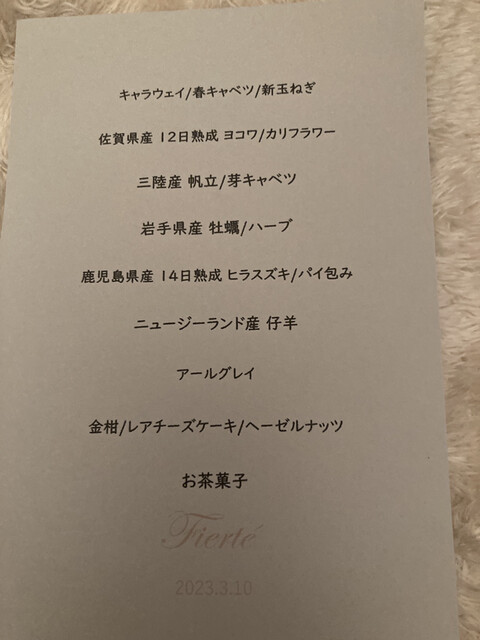 キャラウェイ/春キャベツ/新玉ねぎ
佐賀県産 12日熟成 ヨコワ/カリフラワー
三陸産 帆立/芽キャベツ
岩手県産 牡蠣/ハーブ
鹿児島県産 14日熟成 ヒラスズキ/パイ包み
ニュージーランド産 仔羊
アールグレイ
金柑/レアチーズケーキ/ヘーゼルナッツ
お茶菓子
Fierté
2023.3.10